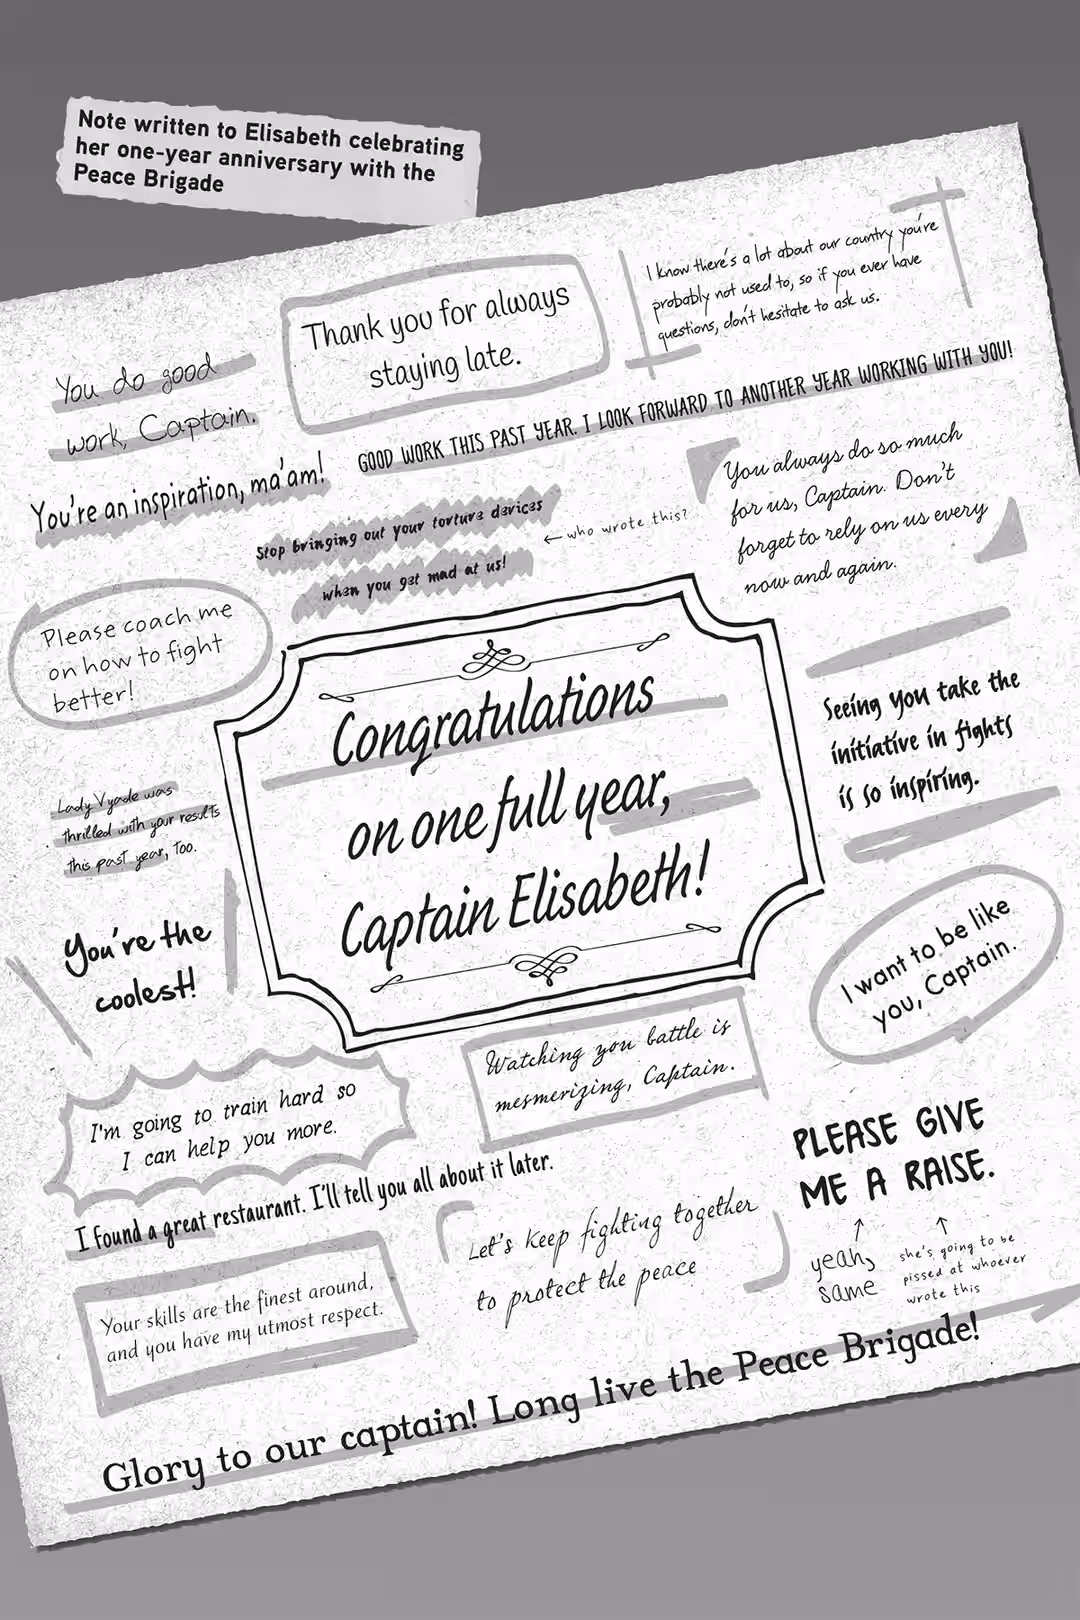 Note written to Elisabeth celebrating
her one-year anniversary with the
Peace Brigade
You do good
work, Captain.
Thank you for always
staying late.
I know there's a lot about our country you're
probably not used to, so if you ever have
questions, don't hesitate to ask us.
GOOD WORK THIS PAST YEAR. I LOOK FORWARD TO ANOTHER YEAR WORKING WITH YOU!
You're an inspiration, ma'am!
Stop bringing out your torture devices
when you get mad at us!
← who wrote this?
You always do so much
for us, Captain. Don't
forget to rely on us every
now and again.
Please coach me
on how to fight
better!
Congratulations
on one full year,
Captain Elisabeth!
Seeing you take the
initiative in fights
is so inspiring.
Lady Vyade was
thrilled with your results
this past year, too.
You're the
coolest!
I want to be like
you, Captain.
Watching you battle is
mesmerizing, Captain.
I'm going to train hard so
I can help you more.
PLEASE GIVE
ME A RAISE.
↑
yeah,
same
↑
she's going to be
pissed at whoever
wrote this
I found a great restaurant. I'll tell you all about it later.
Let's keep fighting together
to protect the peace
Your skills are the finest around,
and you have my utmost respect.
Glory to our captain! Long live the Peace Brigade!